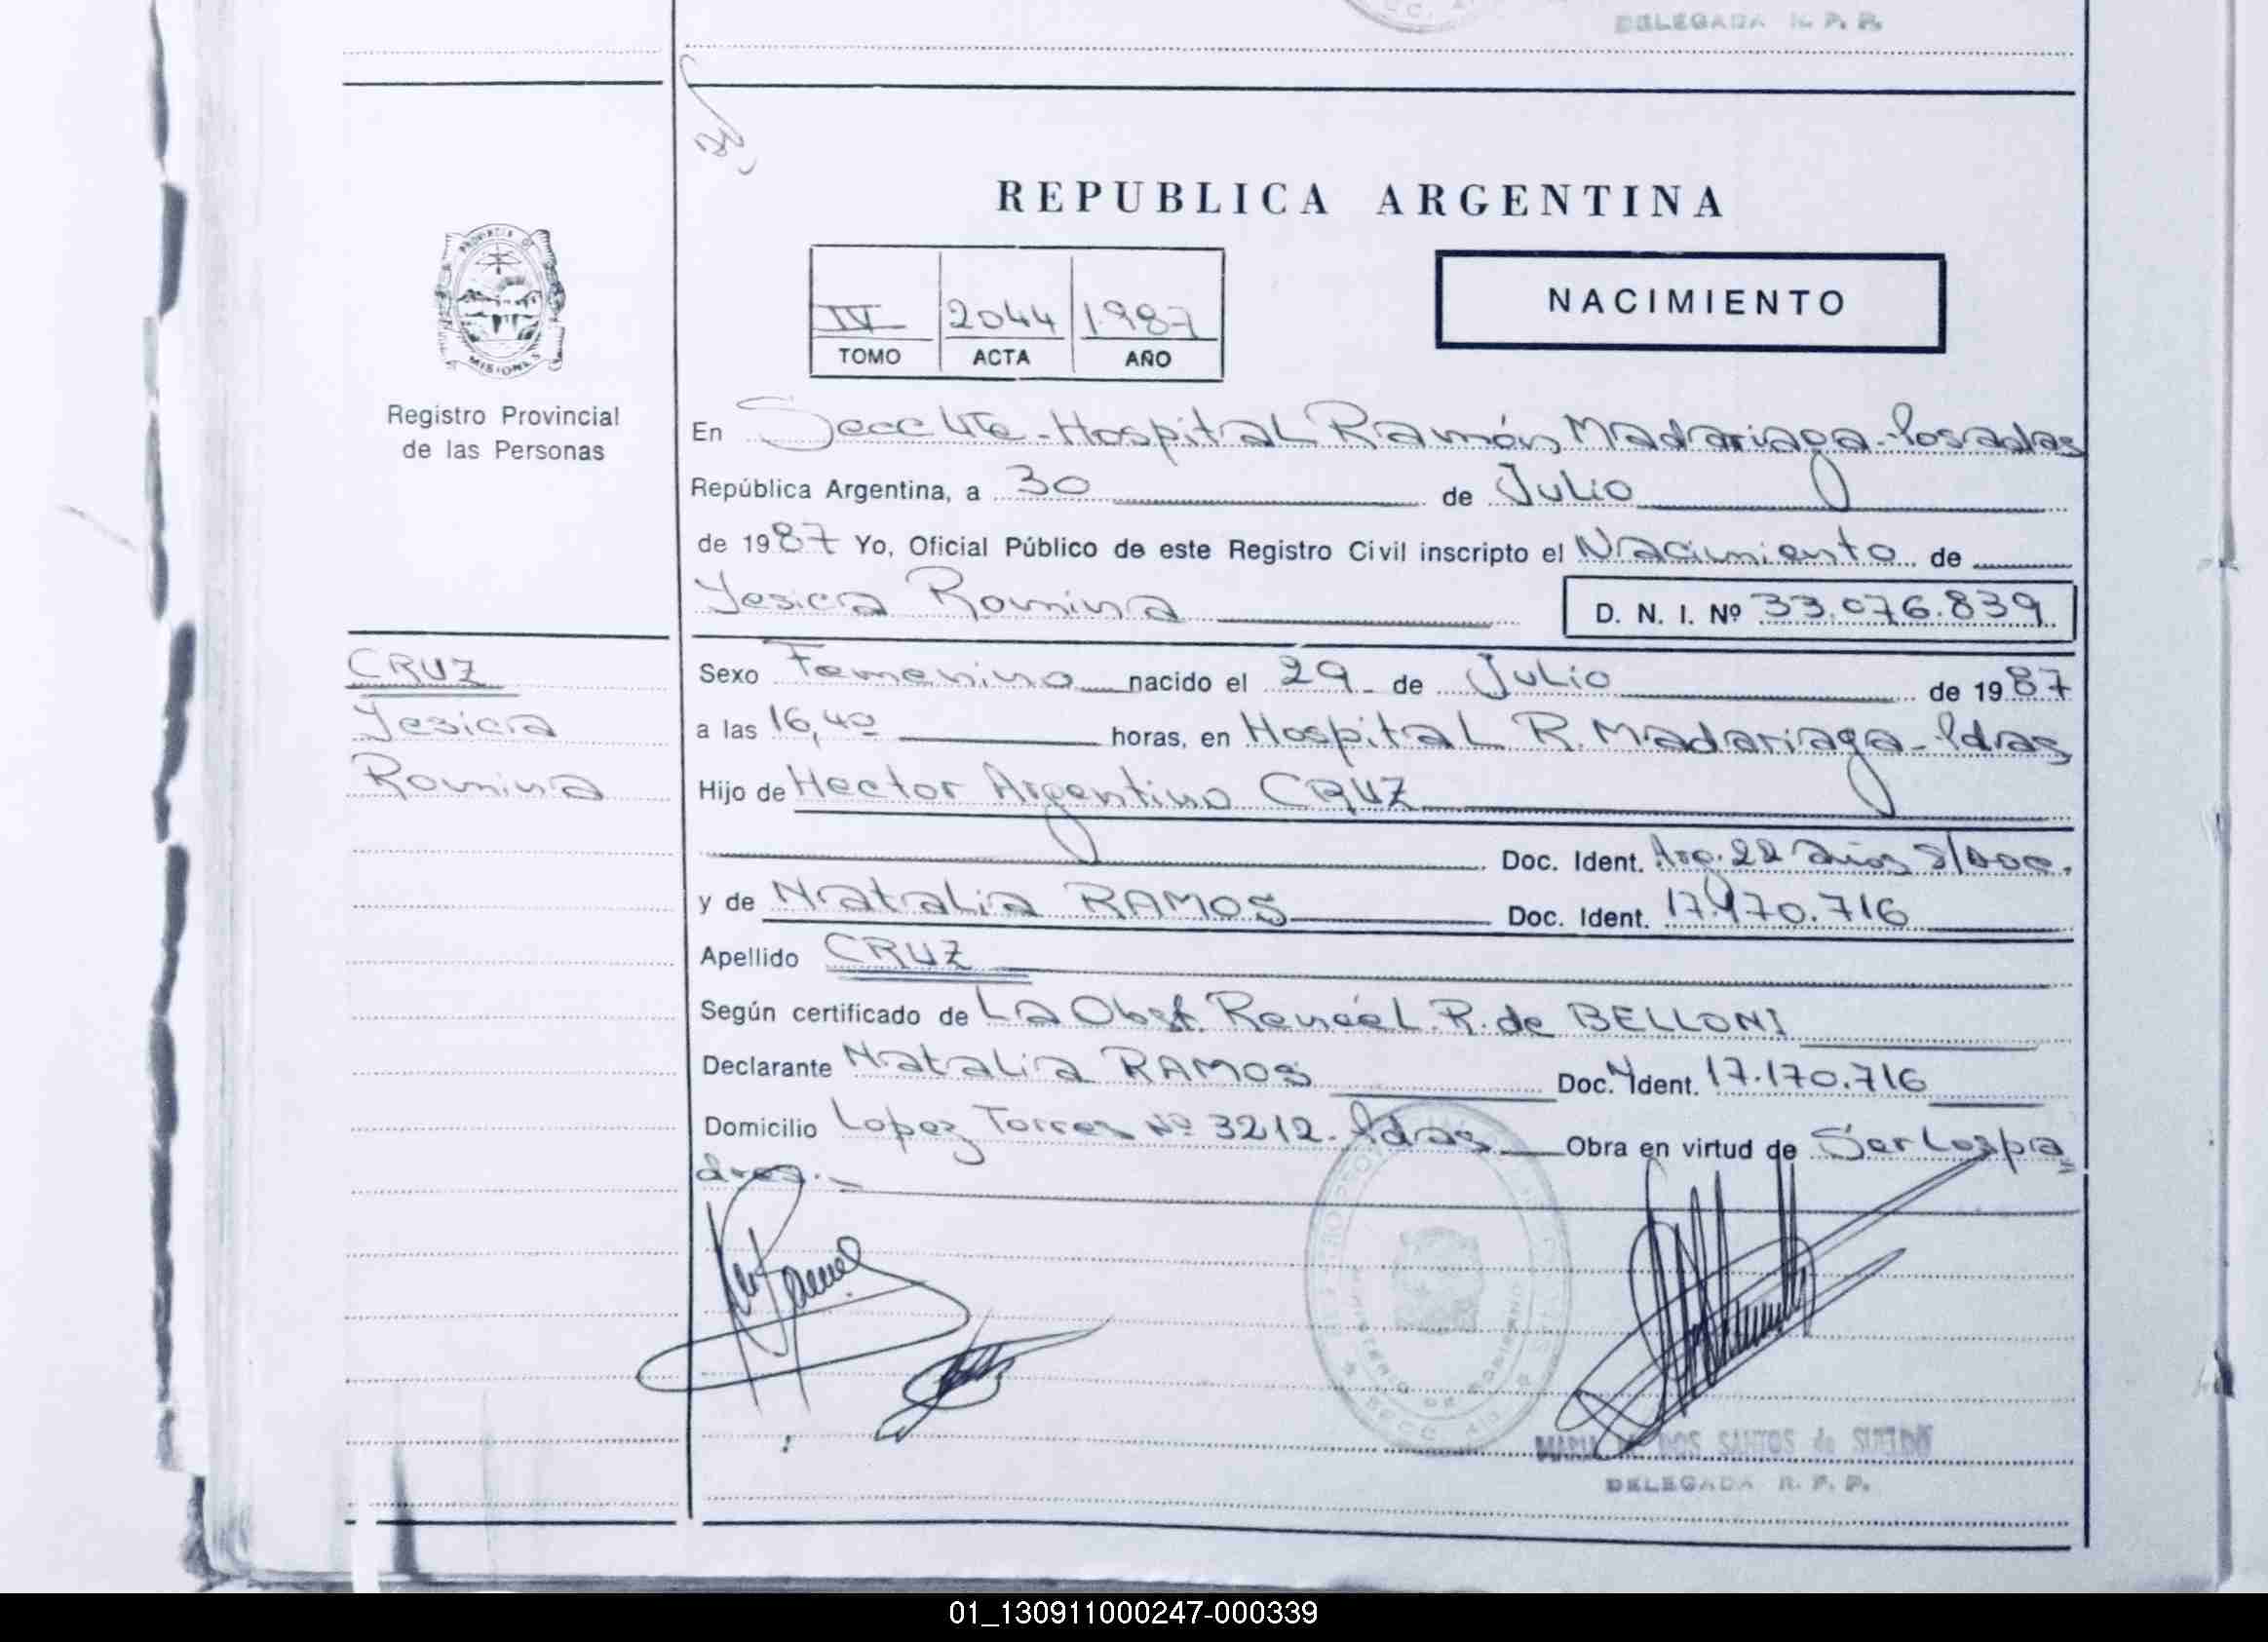 DELEGADA R. P. P.
REPUBLICA ARGENTINA
PROVINCIA DE
MISIONES
IV 2044 1987
TOMO ACTA AÑO
NACIMIENTO
Registro Provincial
de las Personas
En Secc 4te - Hospital Ramón Madariaga - Posadas
República Argentina, a 30 de Julio
de 1987 Yo, Oficial Público de este Registro Civil inscripto el Nacimiento de
Yesica Romina D. N. I. Nº 33.076.839
CRUZ
Yesica
Romina
Sexo Femenino nacido el 29 - de Julio de 1987
a las 16,40 horas, en Hospital R. Madariaga - Pdas
Hijo de Hector Argentino CRUZ
Doc. Ident. Arg. 22 años S/Doc.
y de Natalia RAMOS Doc. Ident. 17.170.716
Apellido CRUZ
Según certificado de La Obst. Renée L. R. de BELLONI
Declarante Natalia RAMOS Doc. Ident. 17.170.716
Domicilio Lopez Torres Nº 3212. Pdas. Obra en virtud de Ser los pa
dres. -
MINISTERIO DE GOBIERNO
MARIA DOS SANTOS de
DELEGADA R. P. P.
01_130911000247-000339